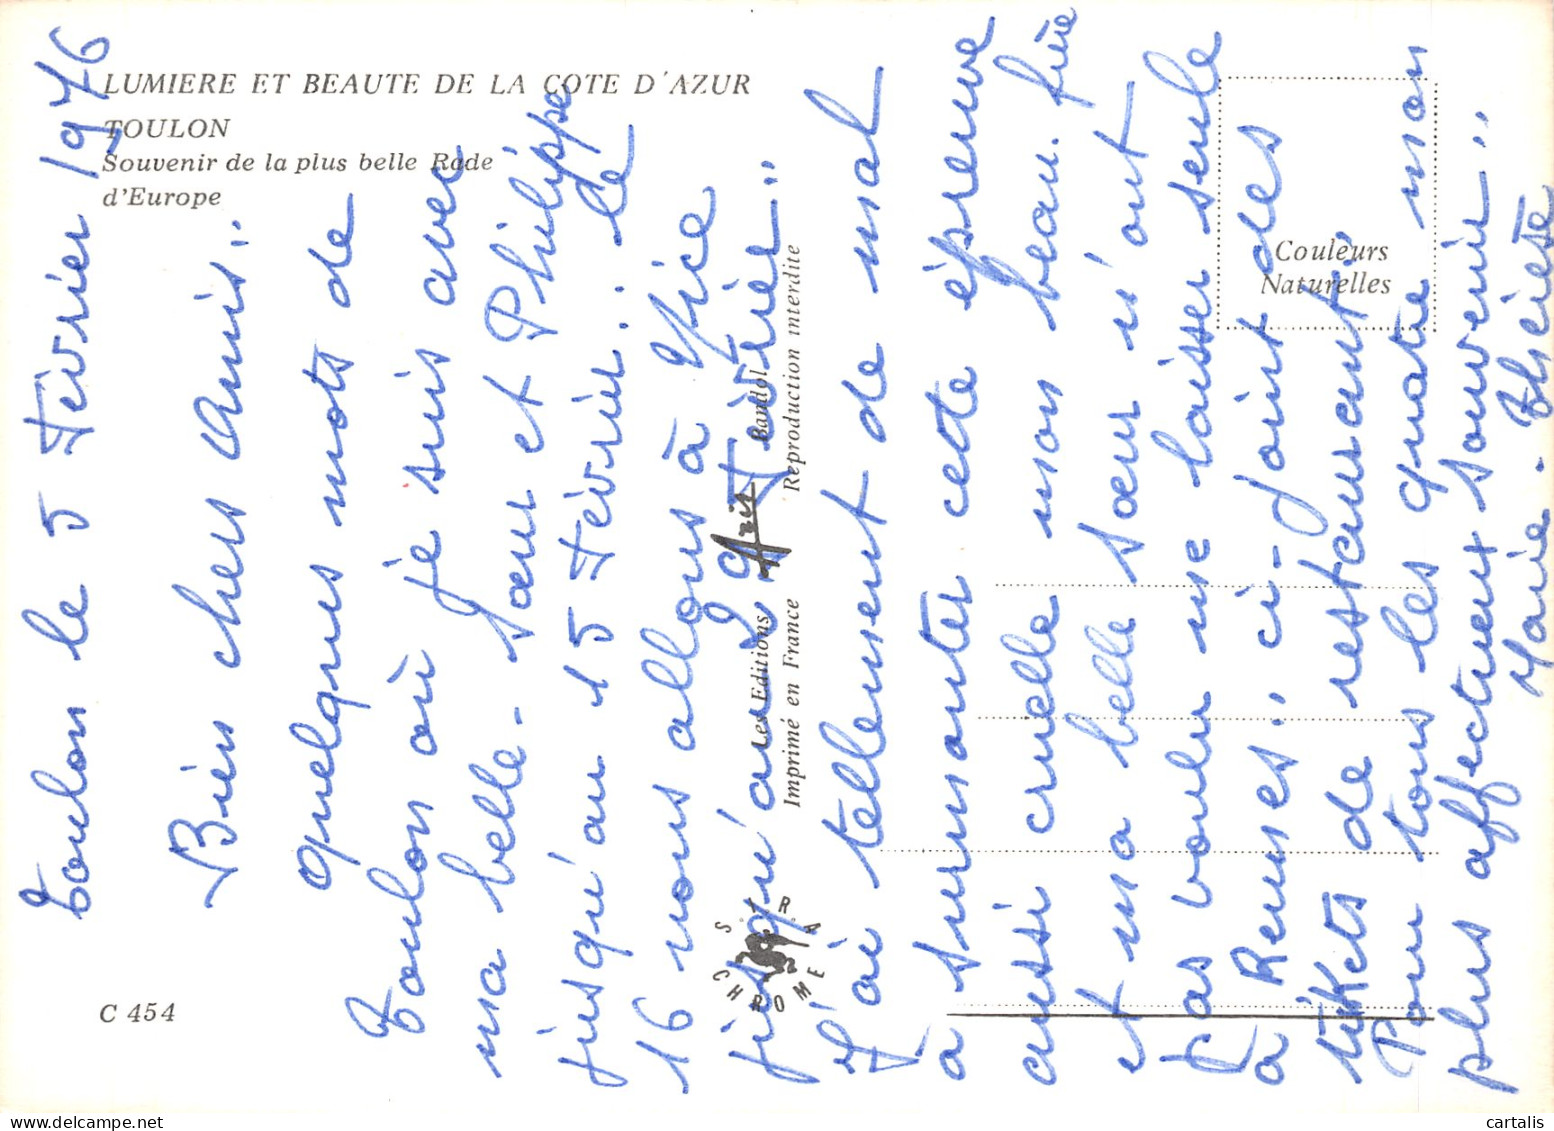 LUMIERE ET BEAUTE DE LA COTE D'AZUR
TOULON
Souvenir de la plus belle Rade
d'Europe
C 454
Couleurs
Naturelles
Les Editions Aris Bandol
Imprimé en France Reproduction interdite
S.I.R.A.
CHROME
Toulon le 5 Février 1976
Bien chers Amis..
quelques mots de
Toulon où je suis avec
ma belle-sœur et Philippe
jusqu'au 15 Février.. le
16 nous allons à Nice
jusqu'au 29 Février..
J'ai tellement de mal
à surmonter cette épreuve
aussi cruelle mon beau-frère
et ma belle sœur n'ont
pas voulu me laisser seule
à Rennes.. ci-joint des
tikets de restaurant,
Pour tous les quatre mon
plus affectueux souvenir..
Marie-Thérèse
cartalis